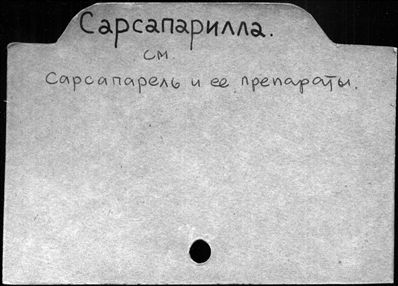 Сарсапарилла.
см.
Сарсапарель и ее препараты.